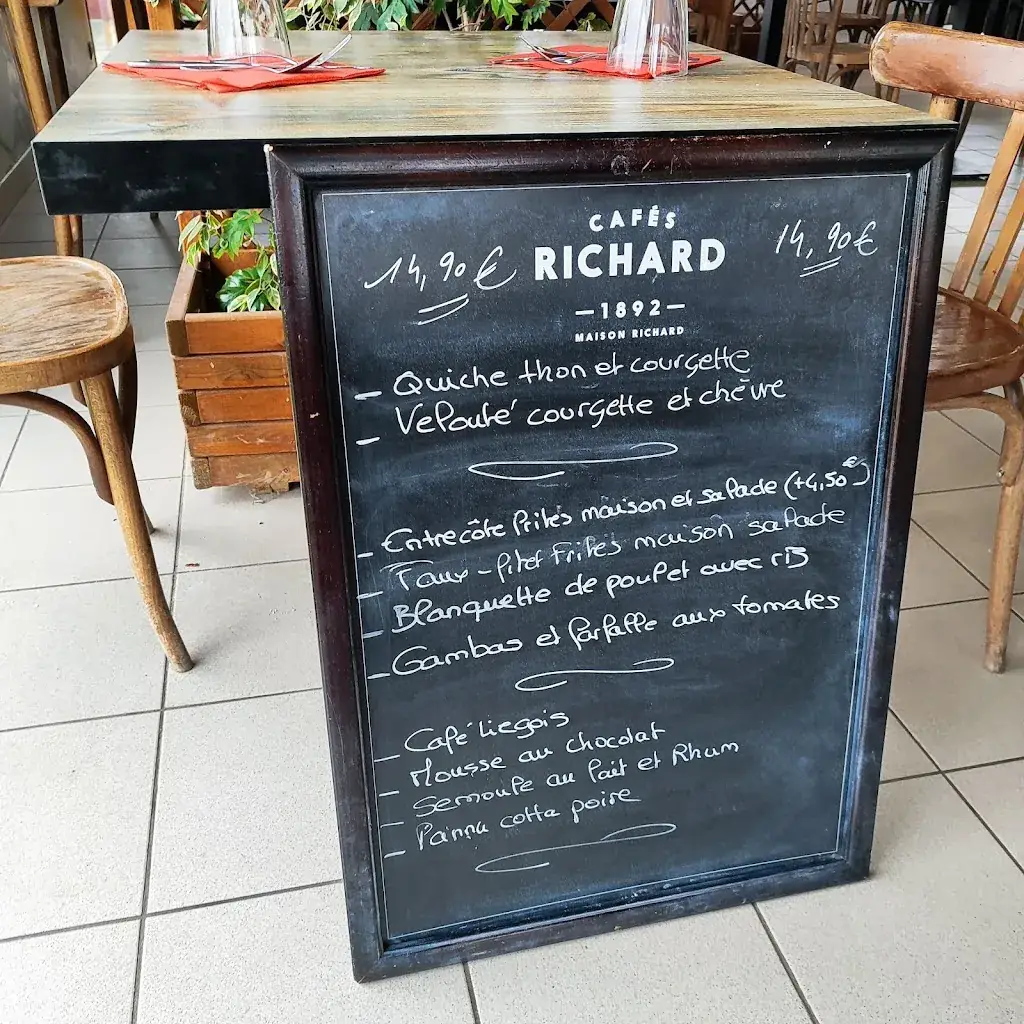 CAFÉS
14,90€ RICHARD 14,90€
—1892—
MAISON RICHARD
- Quiche thon et courgette
- Velouté courgette et chèvre
- Entrecôte frites maison et salade (+4,50€)
- Faux-filet Frites maison salade
- Blanquette de poulet avec riz
- Gambas et farfalle aux tomates
- Café liegois
- Mousse au chocolat
- Semoule au lait et Rhum
- Panna cotta poire